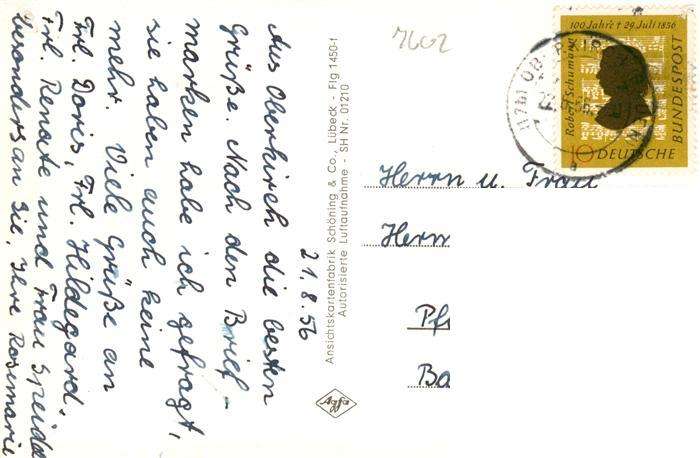 21.8.56
Aus Oberkirch die besten
Grüße. Nach den Brief-
marken habe ich gefragt,
sie haben auch keine
mehr. Viele Grüße an
Frl. Doris, Frl. Hildegard,
Frl. Renate und Frau
besonders an Sie, Ihre Rosemarie
Ansichtskartenfabrik Schöning & Co., Lübeck - Flg 1450-1
Autorisierte Luftaufnahme - SH Nr. 01210
Agfa
7602
100 Jahre † 29. Juli 1856
Robert Schumann
10 DEUTSCHE
BUNDESPOST
Herrn u. Frau
Herrn
Pf
Ba